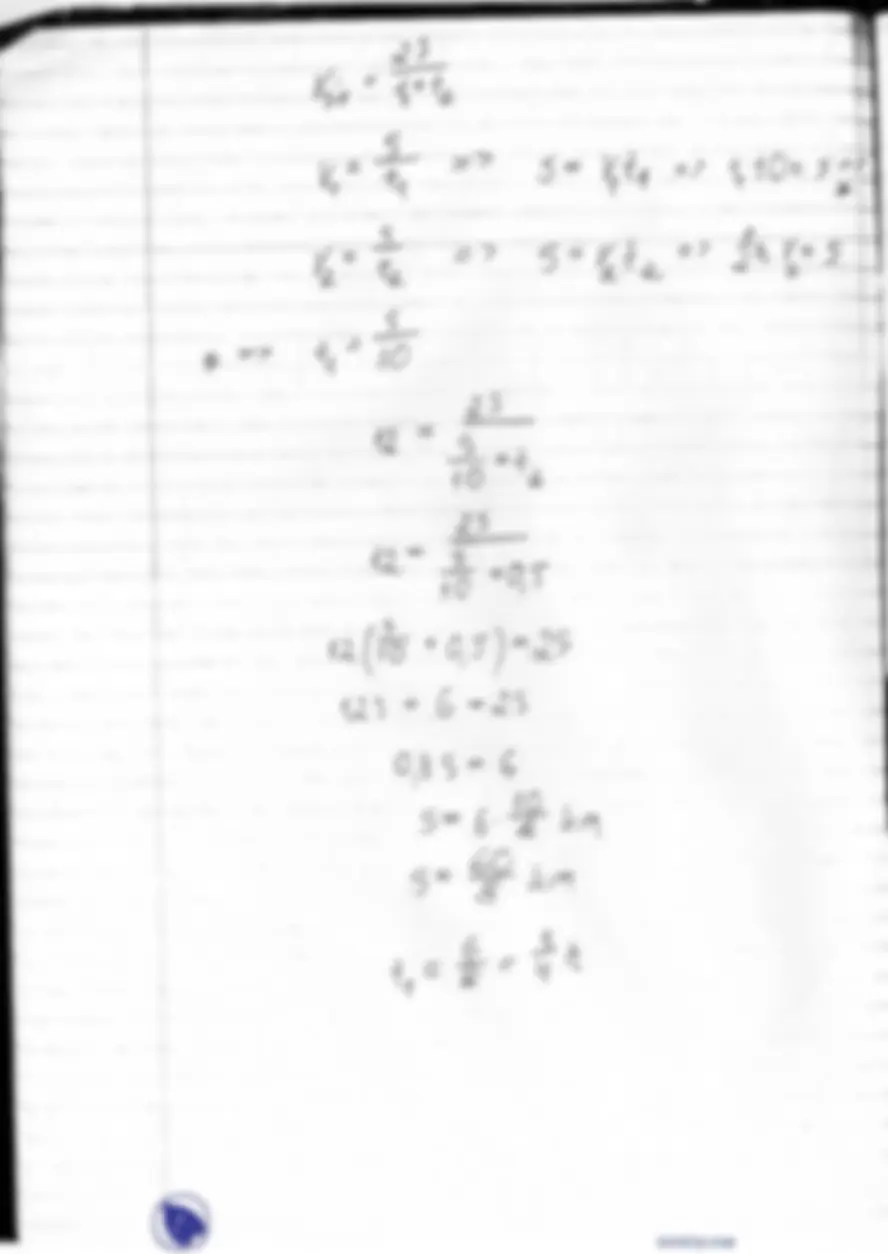 V_sr = 2S / t₁+t₂
V₁ = S/t₁ => S = V₁t₁ => t₁10 = S
V₂ = S/t₂ => S = V₂t₂ => S
* => t₁ = S/10
12 = 2S / (S/10 + t₂)
12 = 2S / (S/10 + 0,5)
12(S/10 + 0,5) = 2S
1,2S + 6 = 2S
0,8S = 6
S = 6 10/8 km
S = 60/8 km
t₁ = 6/8 = 3/4 h